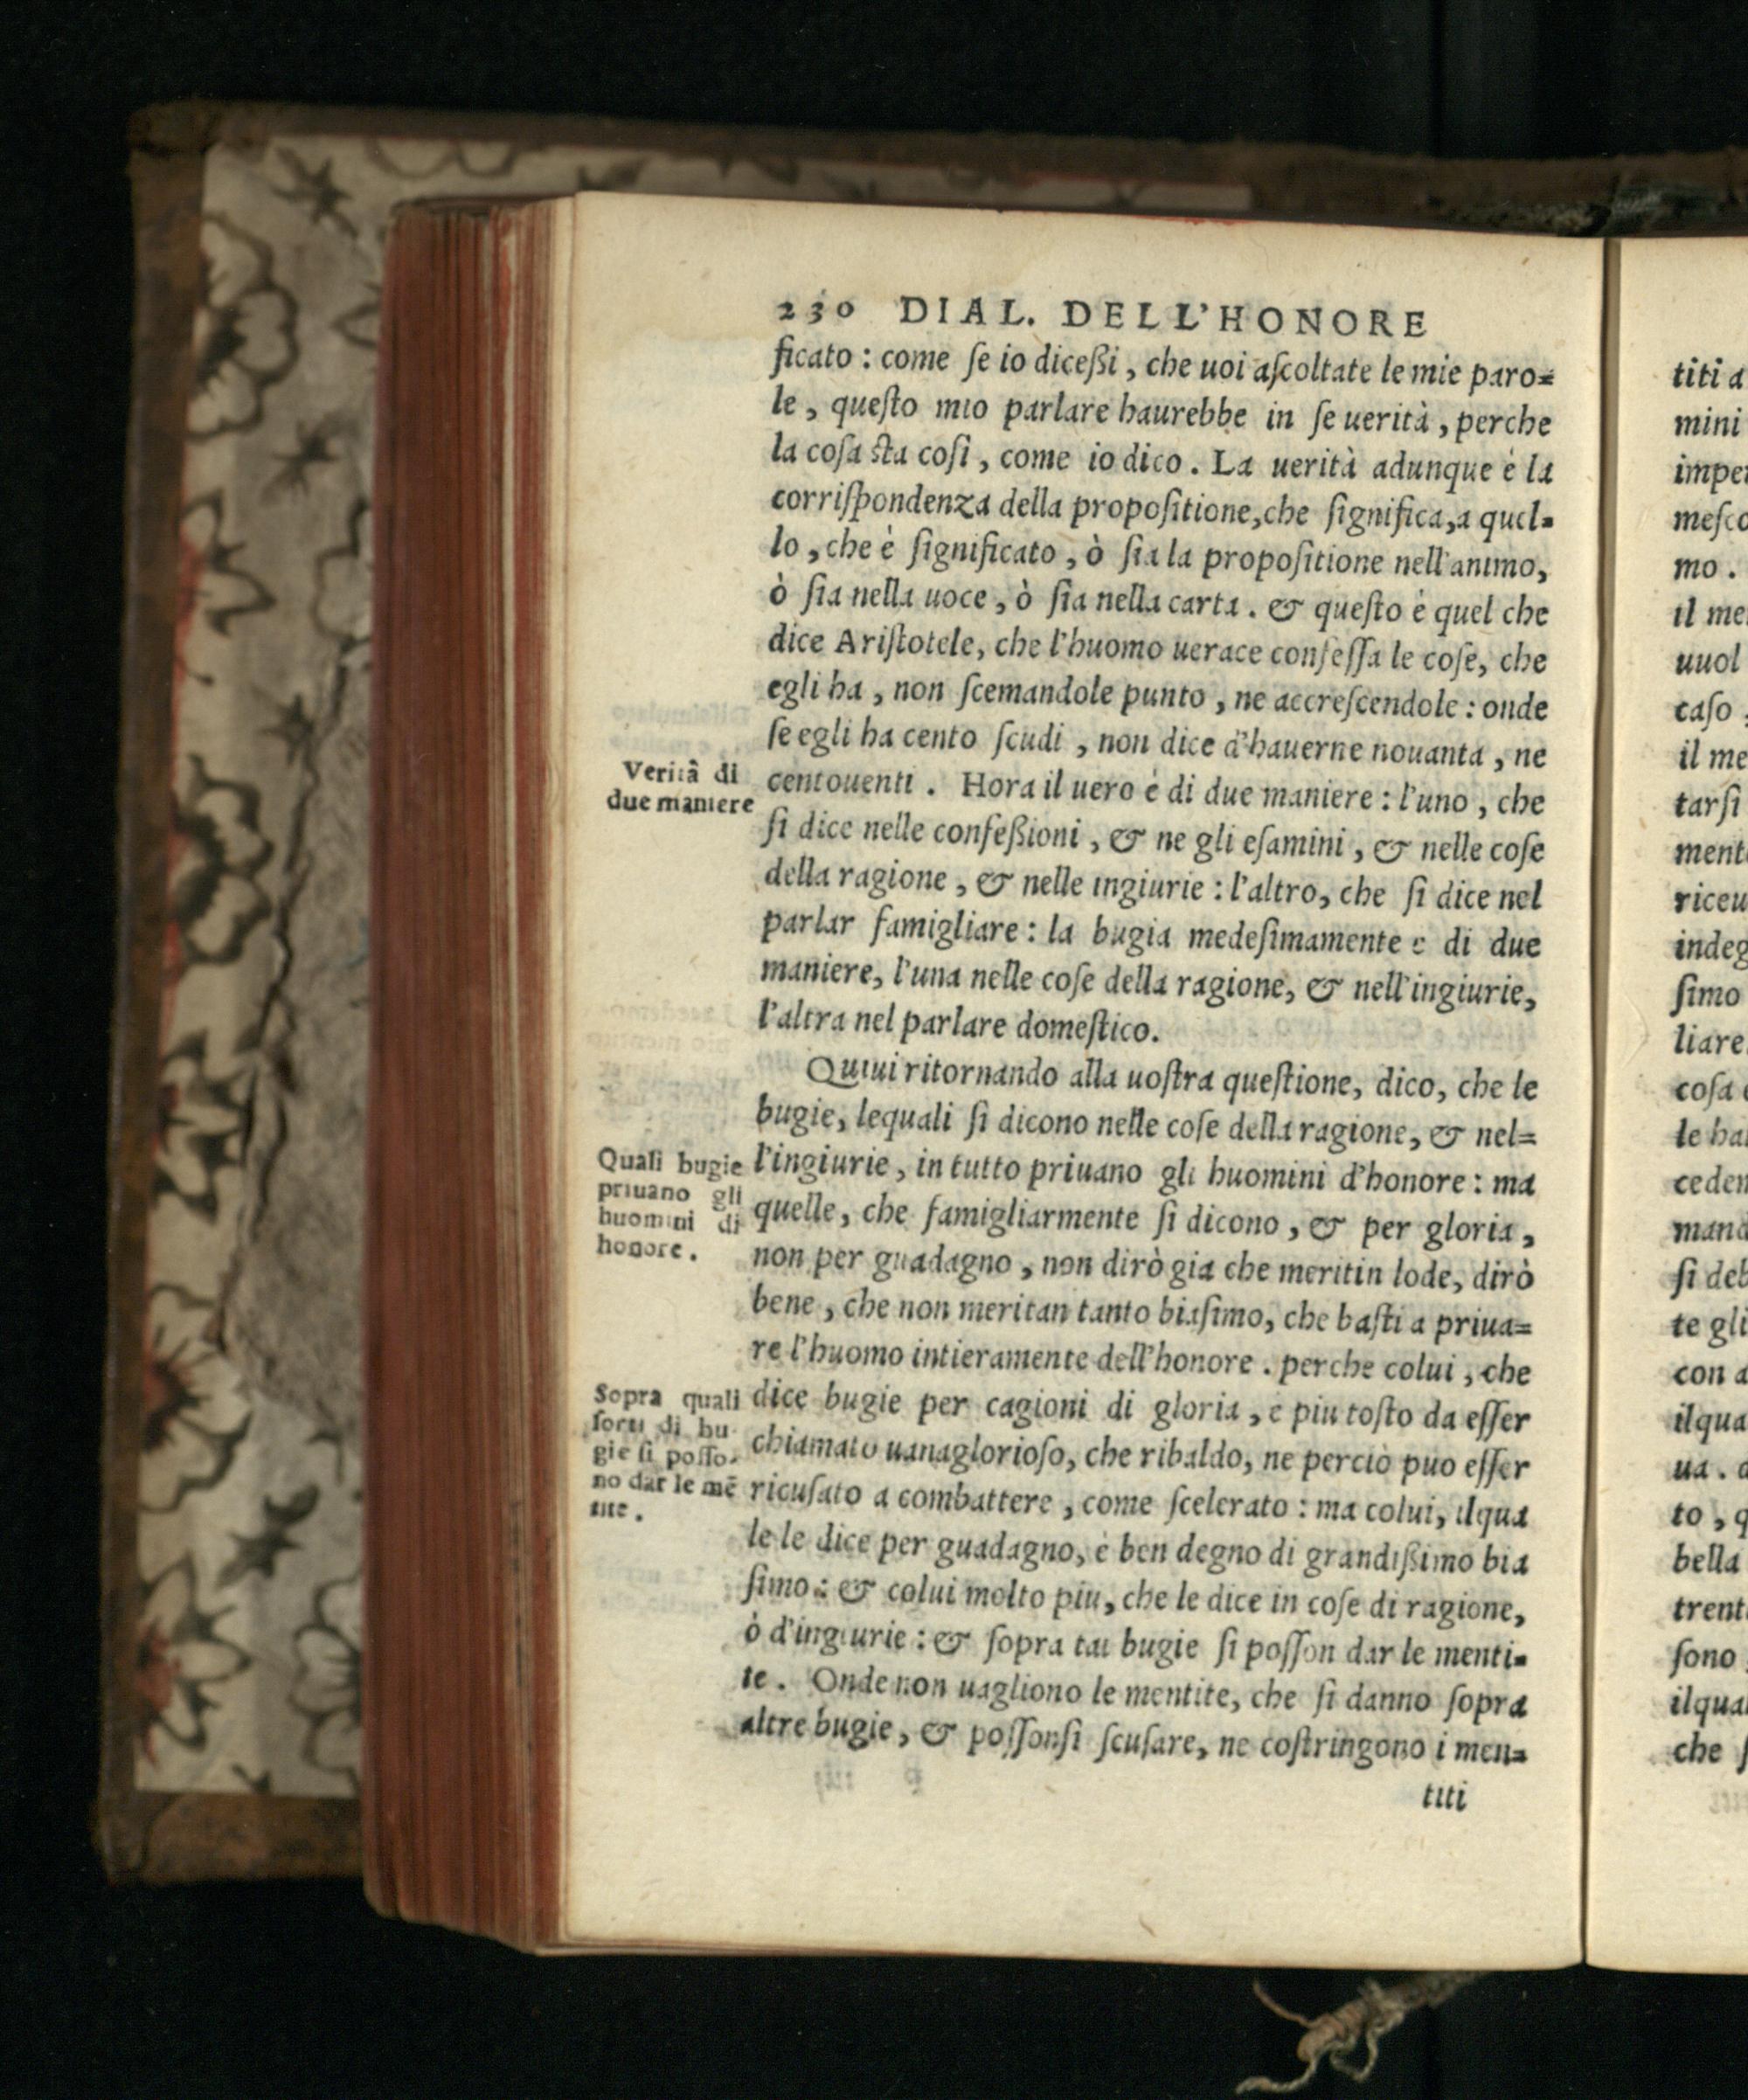 230 DIAL. DELL'HONORE
ficato : come ſe io diceßi , che uoi aſcoltate le mie paro=
le , queſto mio parlare haurebbe in ſe uerità , perche
la coſa sta coſi , come io dico . La uerità adunque è la
corriſpondenza della propoſitione,che ſignifica,a quel=
lo , che è ſignificato , ò ſia la propoſitione nell'animo,
ò ſia nella uoce , ò ſia nella carta . & queſto è quel che
dice Ariſtotele, che l'huomo uerace confeſſa le coſe, che
egli ha , non ſcemandole punto , ne accreſcendole : onde
ſe egli ha cento ſcudi , non dice d'hauerne nouanta , ne
Verità di
due maniere
centouenti . Hora il uero è di due maniere : l'uno , che
ſi dice nelle confeßioni , & ne gli eſamini , & nelle coſe
della ragione , & nelle ingiurie : l'altro, che ſi dice nel
parlar famigliare : la bugia medeſimamente è di due
maniere, l'una nelle coſe della ragione, & nell'ingiurie,
l'altra nel parlare domeſtico.
Quiui ritornando alla uoſtra queſtione, dico, che le
bugie, lequali ſi dicono nelle coſe della ragione, & nel=
Quali bugie
priuano gli
huomini di
honore .
l'ingiurie , in tutto priuano gli huomini d'honore : ma
quelle, che famigliarmente ſi dicono , & per gloria ,
non per guadagno , non dirò gia che meritin lode, dirò
bene , che non meritan tanto biaſimo, che baſti a priua=
re l'huomo intieramente dell'honore . perche colui , che
Sopra quali
ſorti di bu
gie ſi poſſo-
no dar le mē
tite .
dice bugie per cagioni di gloria , e piu toſto da eſſer
chiamato uanaglorioſo, che ribaldo, ne perciò puo eſſer
ricuſato a combattere , come ſcelerato : ma colui, ilqua
le le dice per guadagno, è ben degno di grandißimo bia
ſimo : & colui molto piu, che le dice in coſe di ragione,
ò d'ingiurie : & ſopra tai bugie ſi poſſon dar le menti=
te . Onde non uagliono le mentite, che ſi danno ſopra
altre bugie, & poſſonſi ſcuſare, ne coſtringono i men=
titi
titi a
mini
meſco
mo .
uuol
caſo
il me
tarſi
riceu
indeg
ſimo
liare
coſa
ceden
mand
ſi deb
te gli
con a
ilqua
ua .
to , q
bella
trent
ſono
ilqua
che